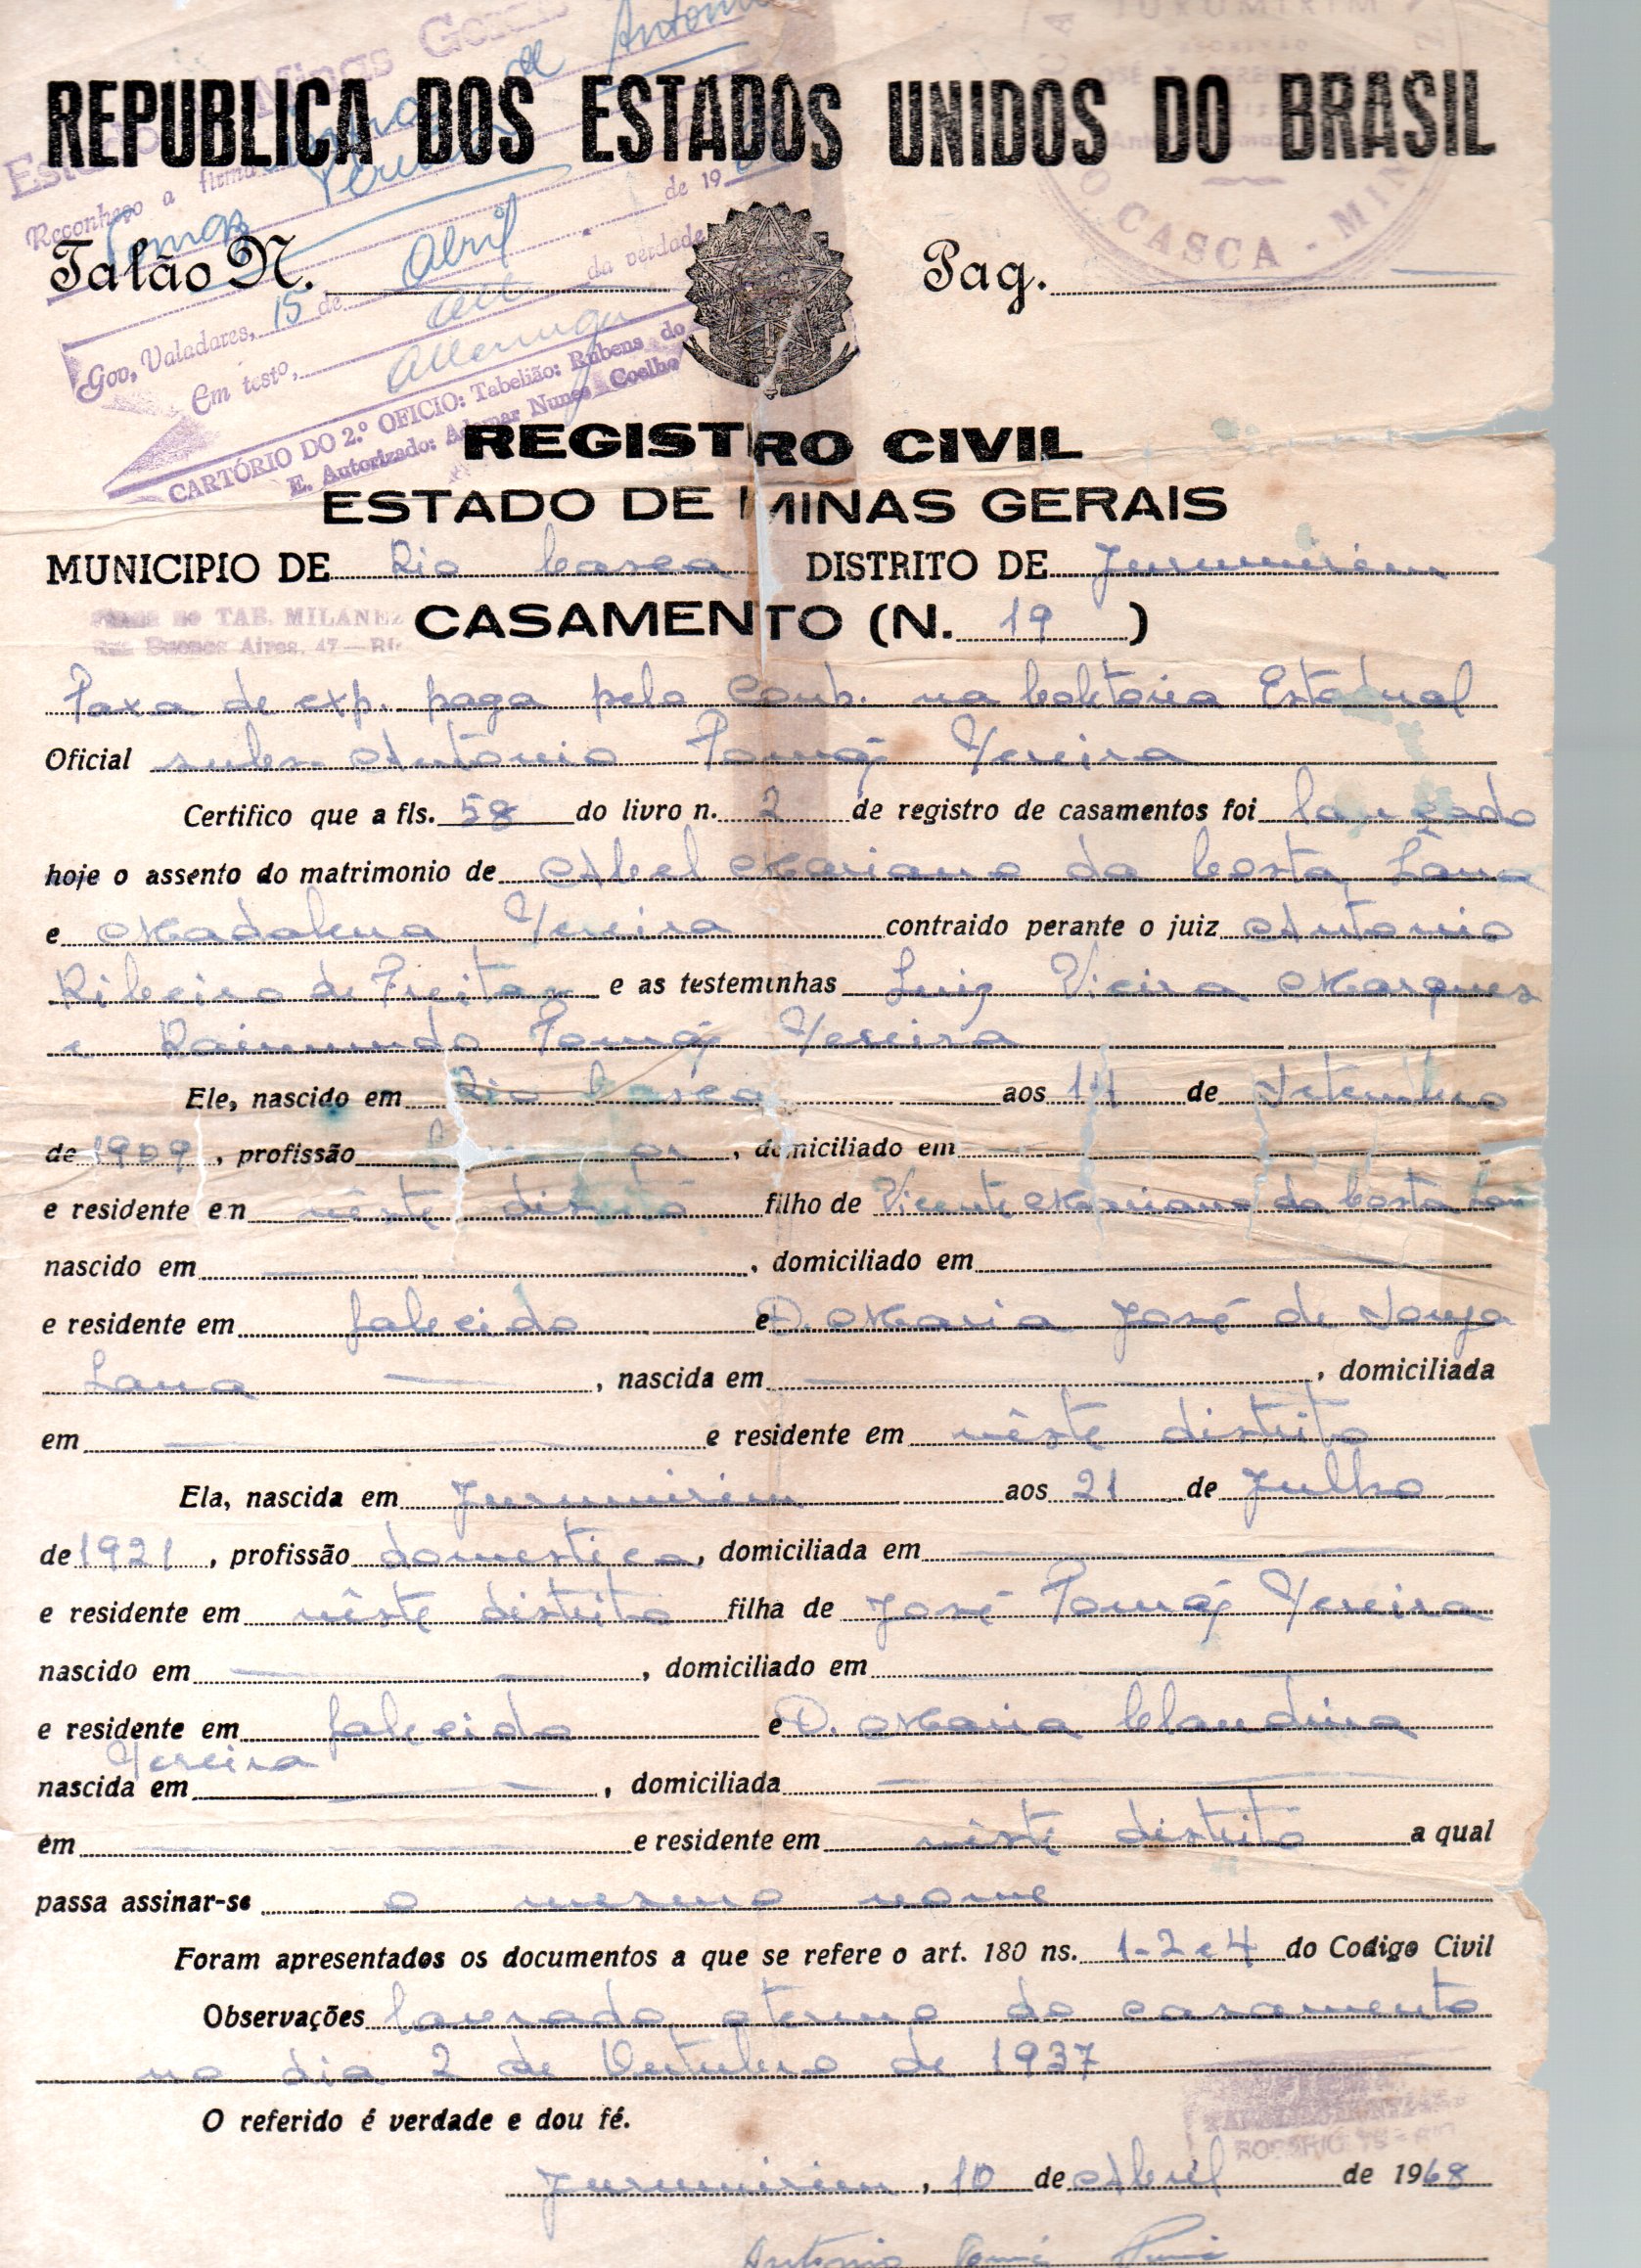 REPUBLICA DOS ESTADOS UNIDOS DO BRASIL
Minas Gerais
Reconheço a firma de Antonio
Tomaz Pereira
Talão N.
Pag.
O CASCA - MIN
Gov. Valadares, 15 de Abril de 19
Em testo, da verdade
CARTÓRIO DO 2.º OFICIO: Tabelião: Rubens do
E. Autorizado: Ademar Nunes Coelho
REGISTRO CIVIL
ESTADO DE MINAS GERAIS
MUNICIPIO DE Rio Casca DISTRITO DE Jurumirim
TAB. MILANEZ
Buenos Aires, 47 — Rio
CASAMENTO (N. 19 )
Taxa de exp. paga pela Conb. na Coletoria Estadual
Oficial subs. Antônio Tomáz Pereira
Certifico que a fls. 58 do livro n. 2 de registro de casamentos foi lançado
hoje o assento do matrimonio de Abel Mariano da Costa Lana
e Madalena Pereira contraido perante o juiz Antonio
Ribeiro de Freitas e as testeminhas Luiz Vieira Marques
e Raimundo Tomáz Pereira
Ele, nascido em Rio Casca aos 14 de Setembro
de 1909, profissão , domiciliado em
e residente en nêste distrito filho de Vicente Mariano da Costa Lan
nascido em , domiciliado em
e residente em falecido e D. Maria José de Souza
Lana , nascida em , domiciliada
em e residente em nêste distrito
Ela, nascida em Jurumirim aos 21 de Julho
de 1921, profissão domestica, domiciliada em
e residente em nêste distrito filha de José Tomáz Pereira
nascido em , domiciliado em
e residente em falecido e D. Maria Claudina
Pereira
nascida em , domiciliada
em e residente em nêste distrito a qual
passa assinar-se o mesmo nome
Foram apresentados os documentos a que se refere o art. 180 ns. 1-2 e 4 do Codigo Civil
Observações lavrado o termo do casamento
no dia 2 de Outubro de 1937
O referido é verdade e dou fé.
Jurumirim, 10 de Abril de 1968
Antonio Tomáz Pereira